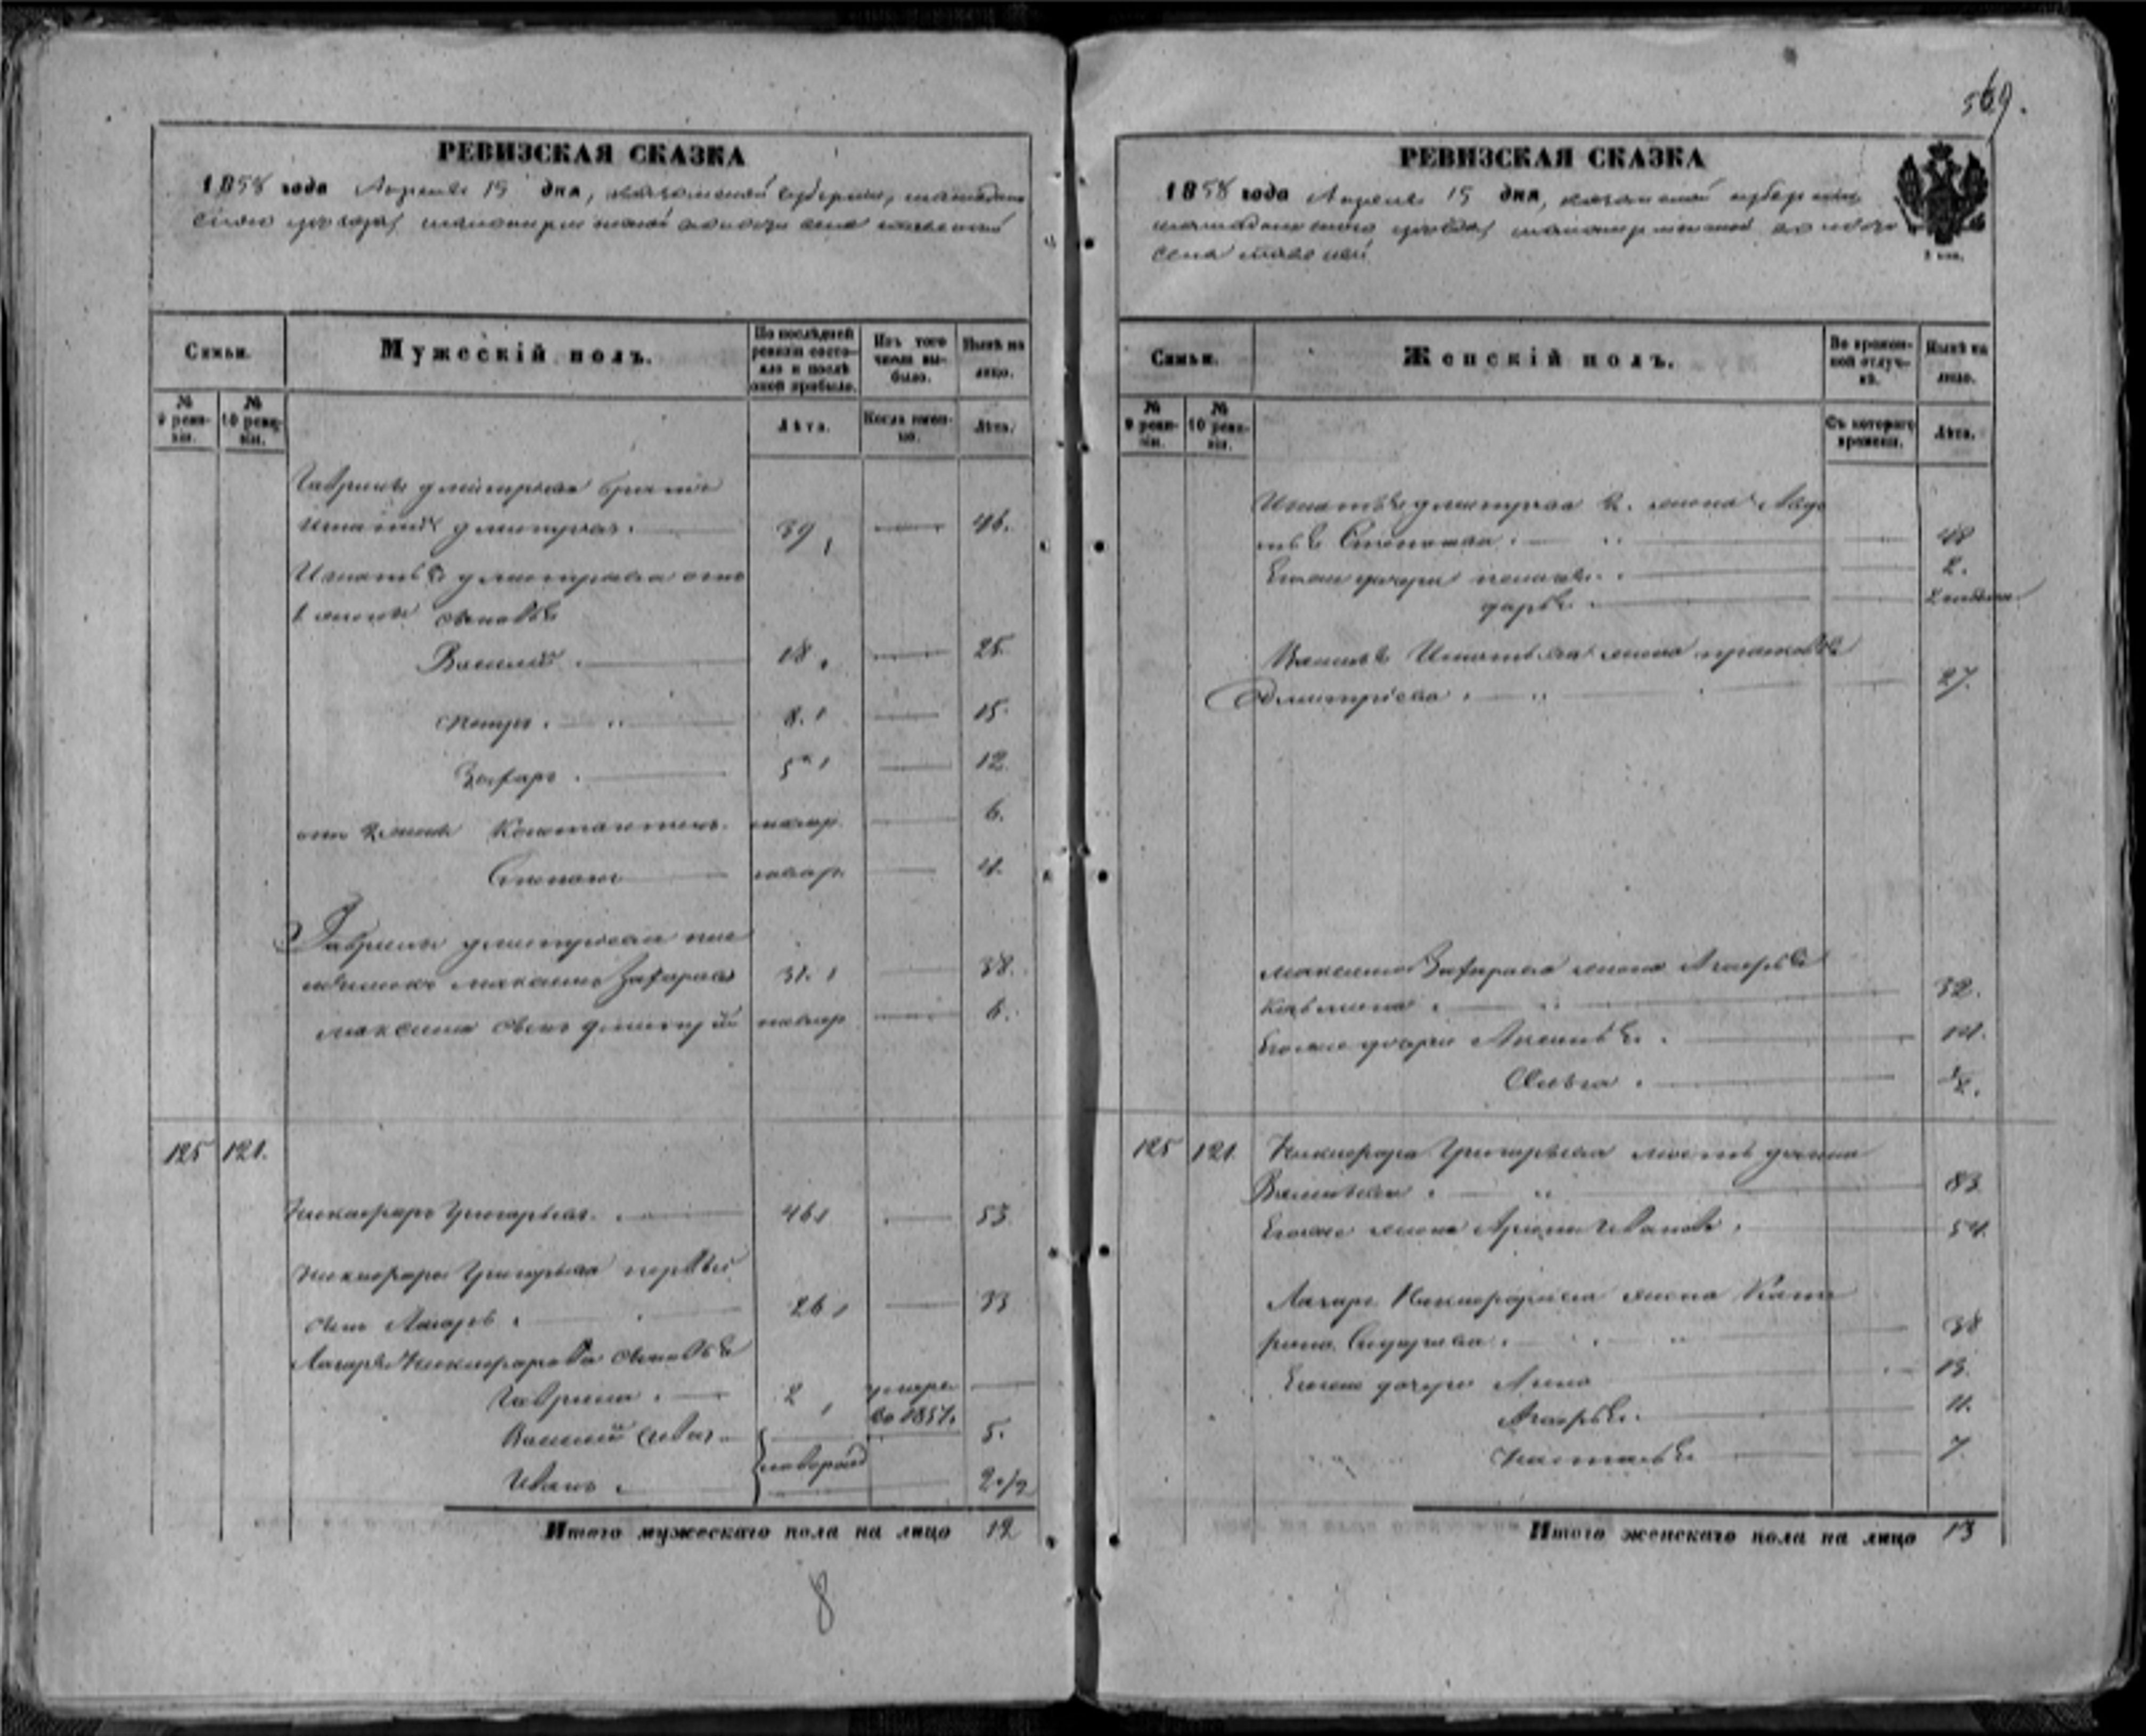 569.
РЕВИЗСКАЯ СКАЗКА
1858 года Апреля 15 дня, казанской губернии,
уезда, волости села
Семьи.
Мужескій полъ.
По послѣдней ревизіи состояло и послѣ оной прибыло.
Изъ того числа выбыло.
Нынѣ на лицо.
№ 9 ревизіи.
№ 10 ревизіи.
Лѣта.
Когда именно.
Лѣта.
Гаврилы дмитриева братъ
Игнатий дмитриев. 39 46.
Игнатья дмитриева отъ
1 жены сыновья
Василий. 18 25.
Петръ. 8. 15.
Захаръ. 5 12.
отъ 2 жены Константинъ. новор. 6.
Степанъ новор. 4.
Гаврилы дмитриева пле
мянникъ максимъ Захаров 31. 38.
максима сынъ дмитрий новор 6.
125 121.
Никифоръ Григорьев. 46 53
Никифора Григорьева первый
сынъ Лазарь. 26 33
Лазаря Никифорова сыновья
Гаврила. 2 умре
во 1851.
Василий 5.
новорож
Иванъ. 2 1/2
Итого мужескаго пола на лицо 12
8
РЕВИЗСКАЯ СКАЗКА
1858 года Апреля 15 дня, казанской губернии
уезда волости
села
2 коп.
Семьи.
Женскій полъ.
Во временной отлучкѣ.
Нынѣ на лицо.
№ 9 ревизіи.
№ 10 ревизіи.
Съ котораго времени.
Лѣта.
Игнатья дмитриева 2. жена Авдо
тья Степанова. 48
Его же дочери пелагея. 2.
дарья. 2 недели
Василья Игнатьева жена прасковья
Дмитріева. 27.
максима Захарова жена Агафья
Козьмина. 32.
Его же дочери 14.
1/2.
125 121. Никифора Григорьева мать
Васильева. 83
Его же жена Арина Иванова. 54.
Лазаря Никифорова жена Кате
рина Сидорова. 38
Его же дочери Анна 13.
Агафья. 11.
Настасья 7.
Итого женскаго пола на лицо 13